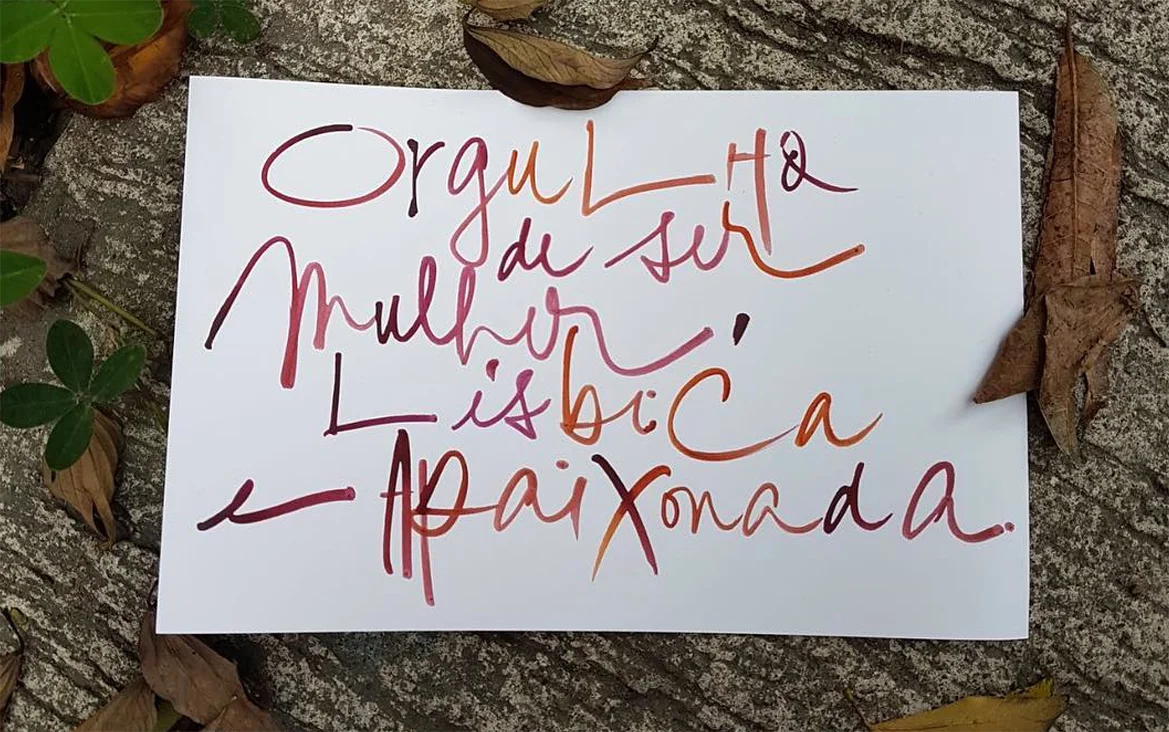 OrguLHo
de ser
Mulher,
LésbiCa
e ApaiXonada.